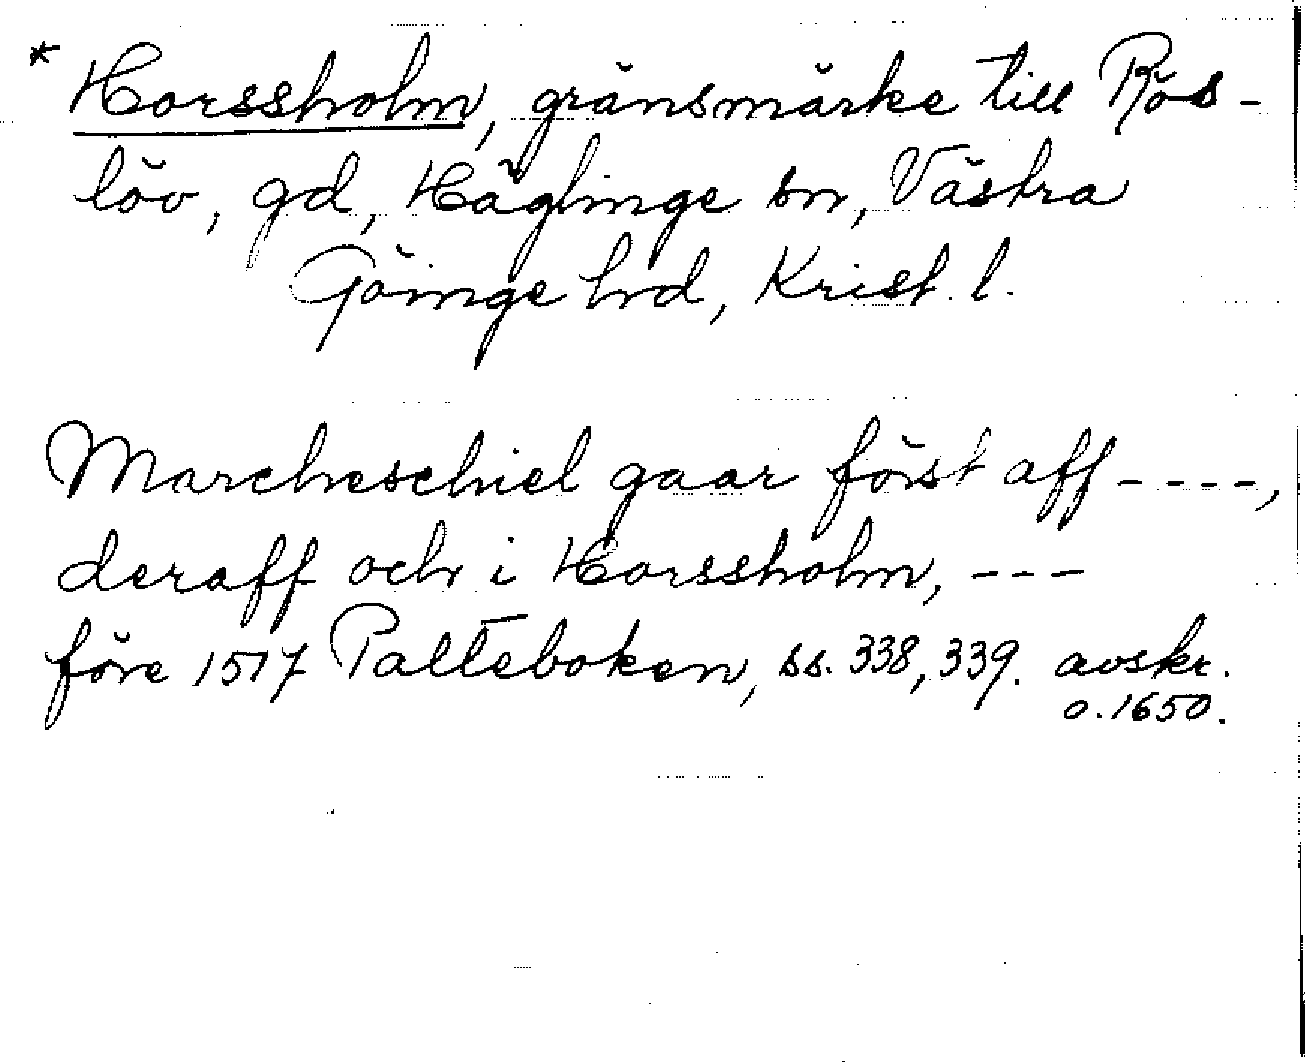 * Horssholm, gränsmärke till Rös-
löv, gd, Häglinge sn, Västra
Göinge hrd, Krist. l.
Marcheschiel gaar först aff ----,
deraff och i Horssholm, ---
före 1517 Palteboken, ss. 338, 339. avskr.
o. 1650.